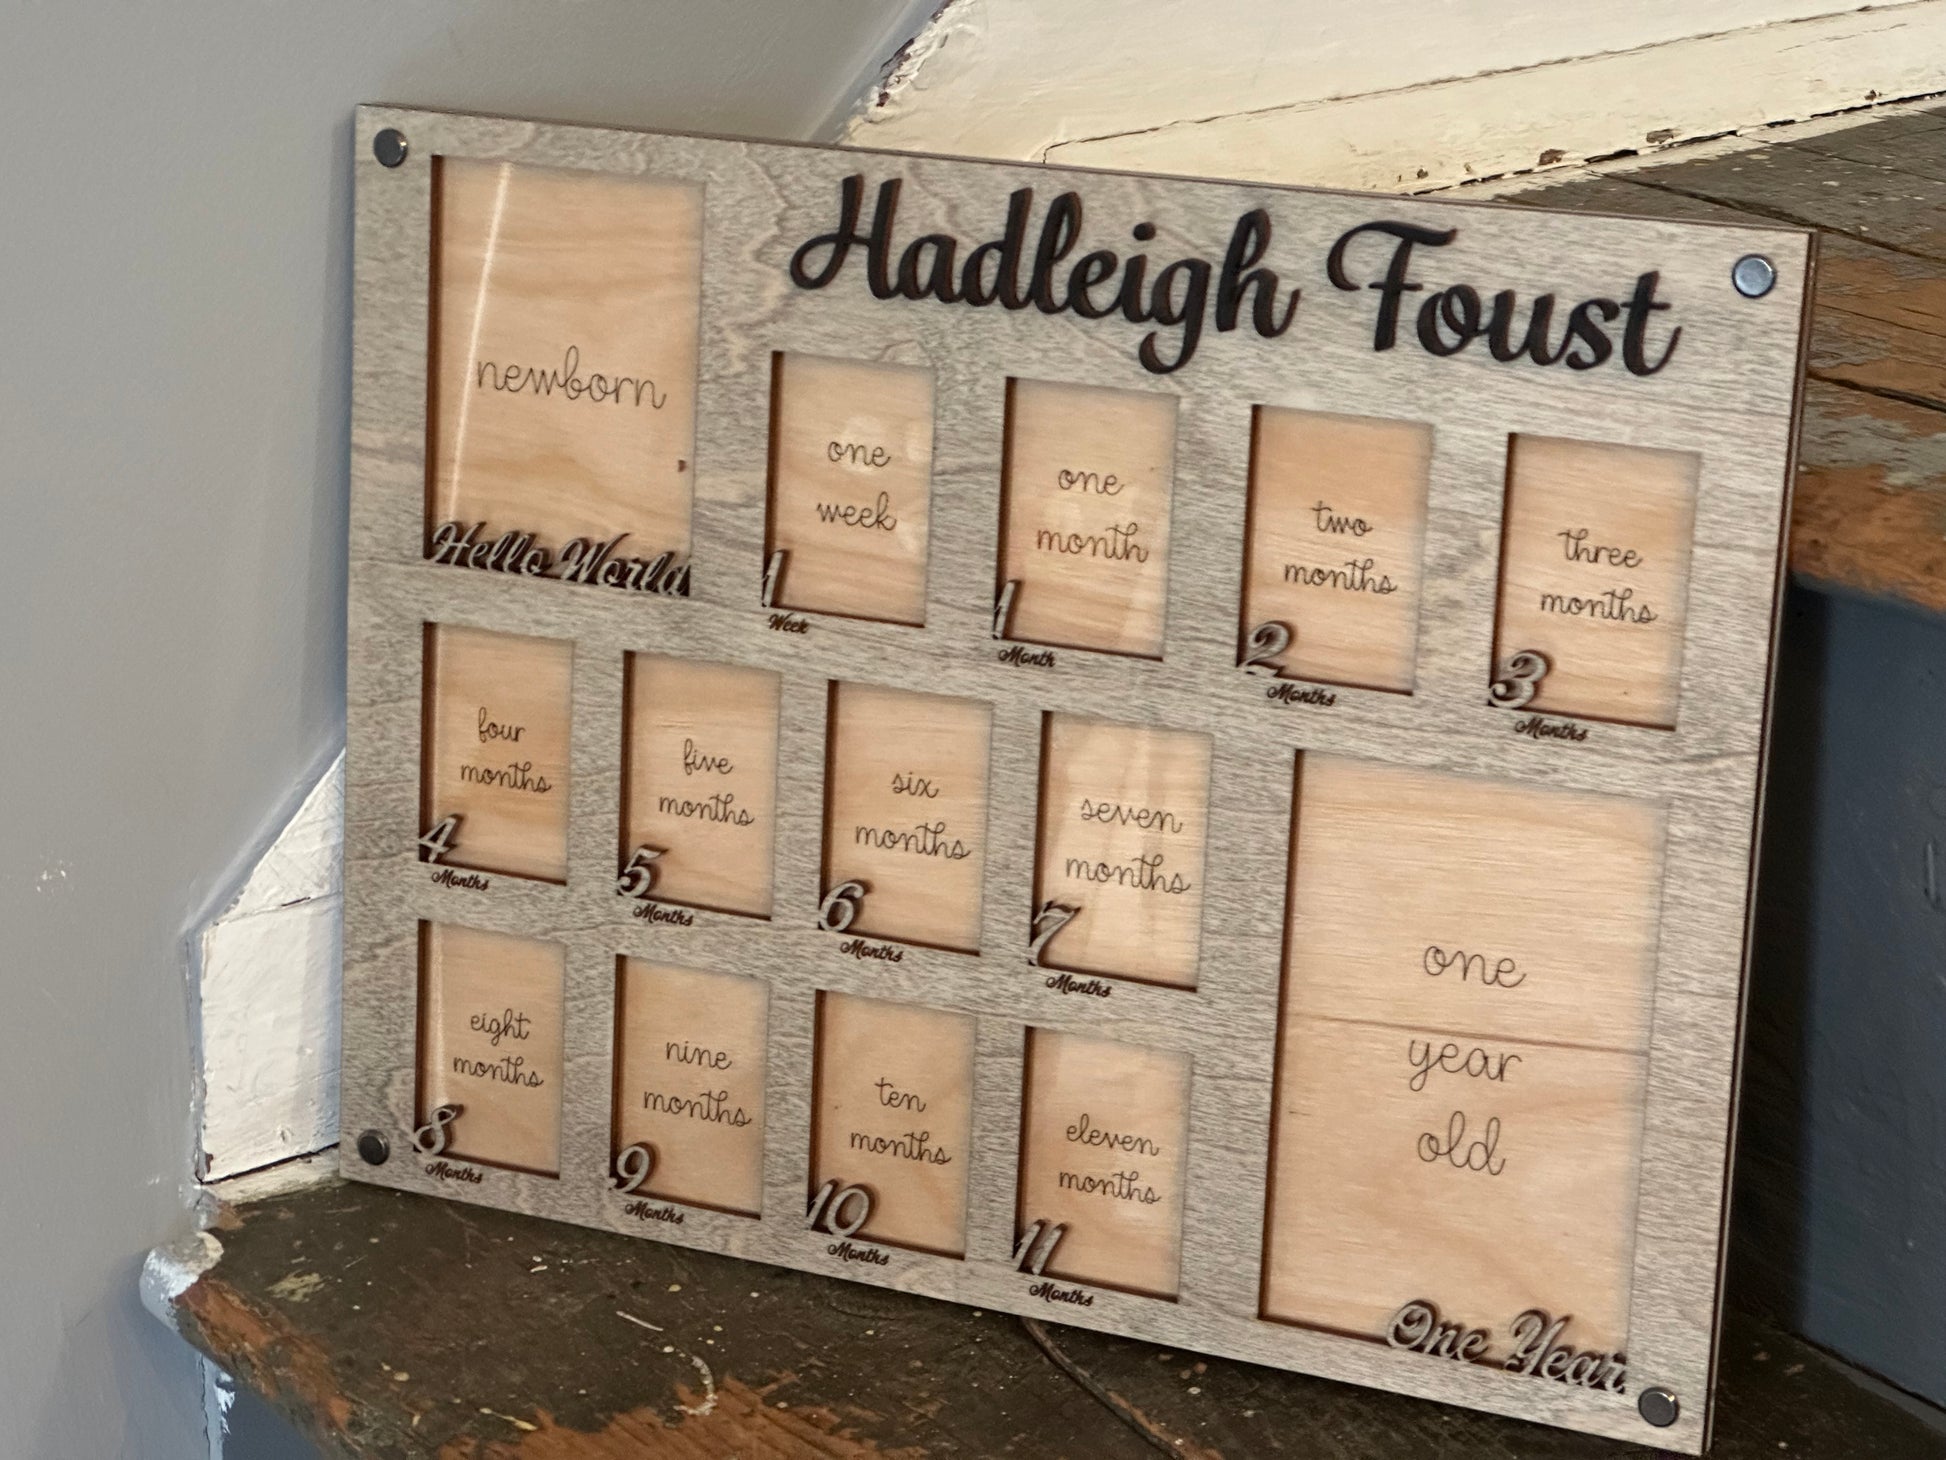 Hadleigh Foust
newborn
Hello World
one
week
1
Week
one
month
1
Month
two
months
2
Months
three
months
3
Months
four
months
4
Months
five
months
5
Months
six
months
6
Months
seven
months
7
Months
eight
months
8
Months
nine
months
9
Months
ten
months
10
Months
eleven
months
11
Months
one
year
old
One Year